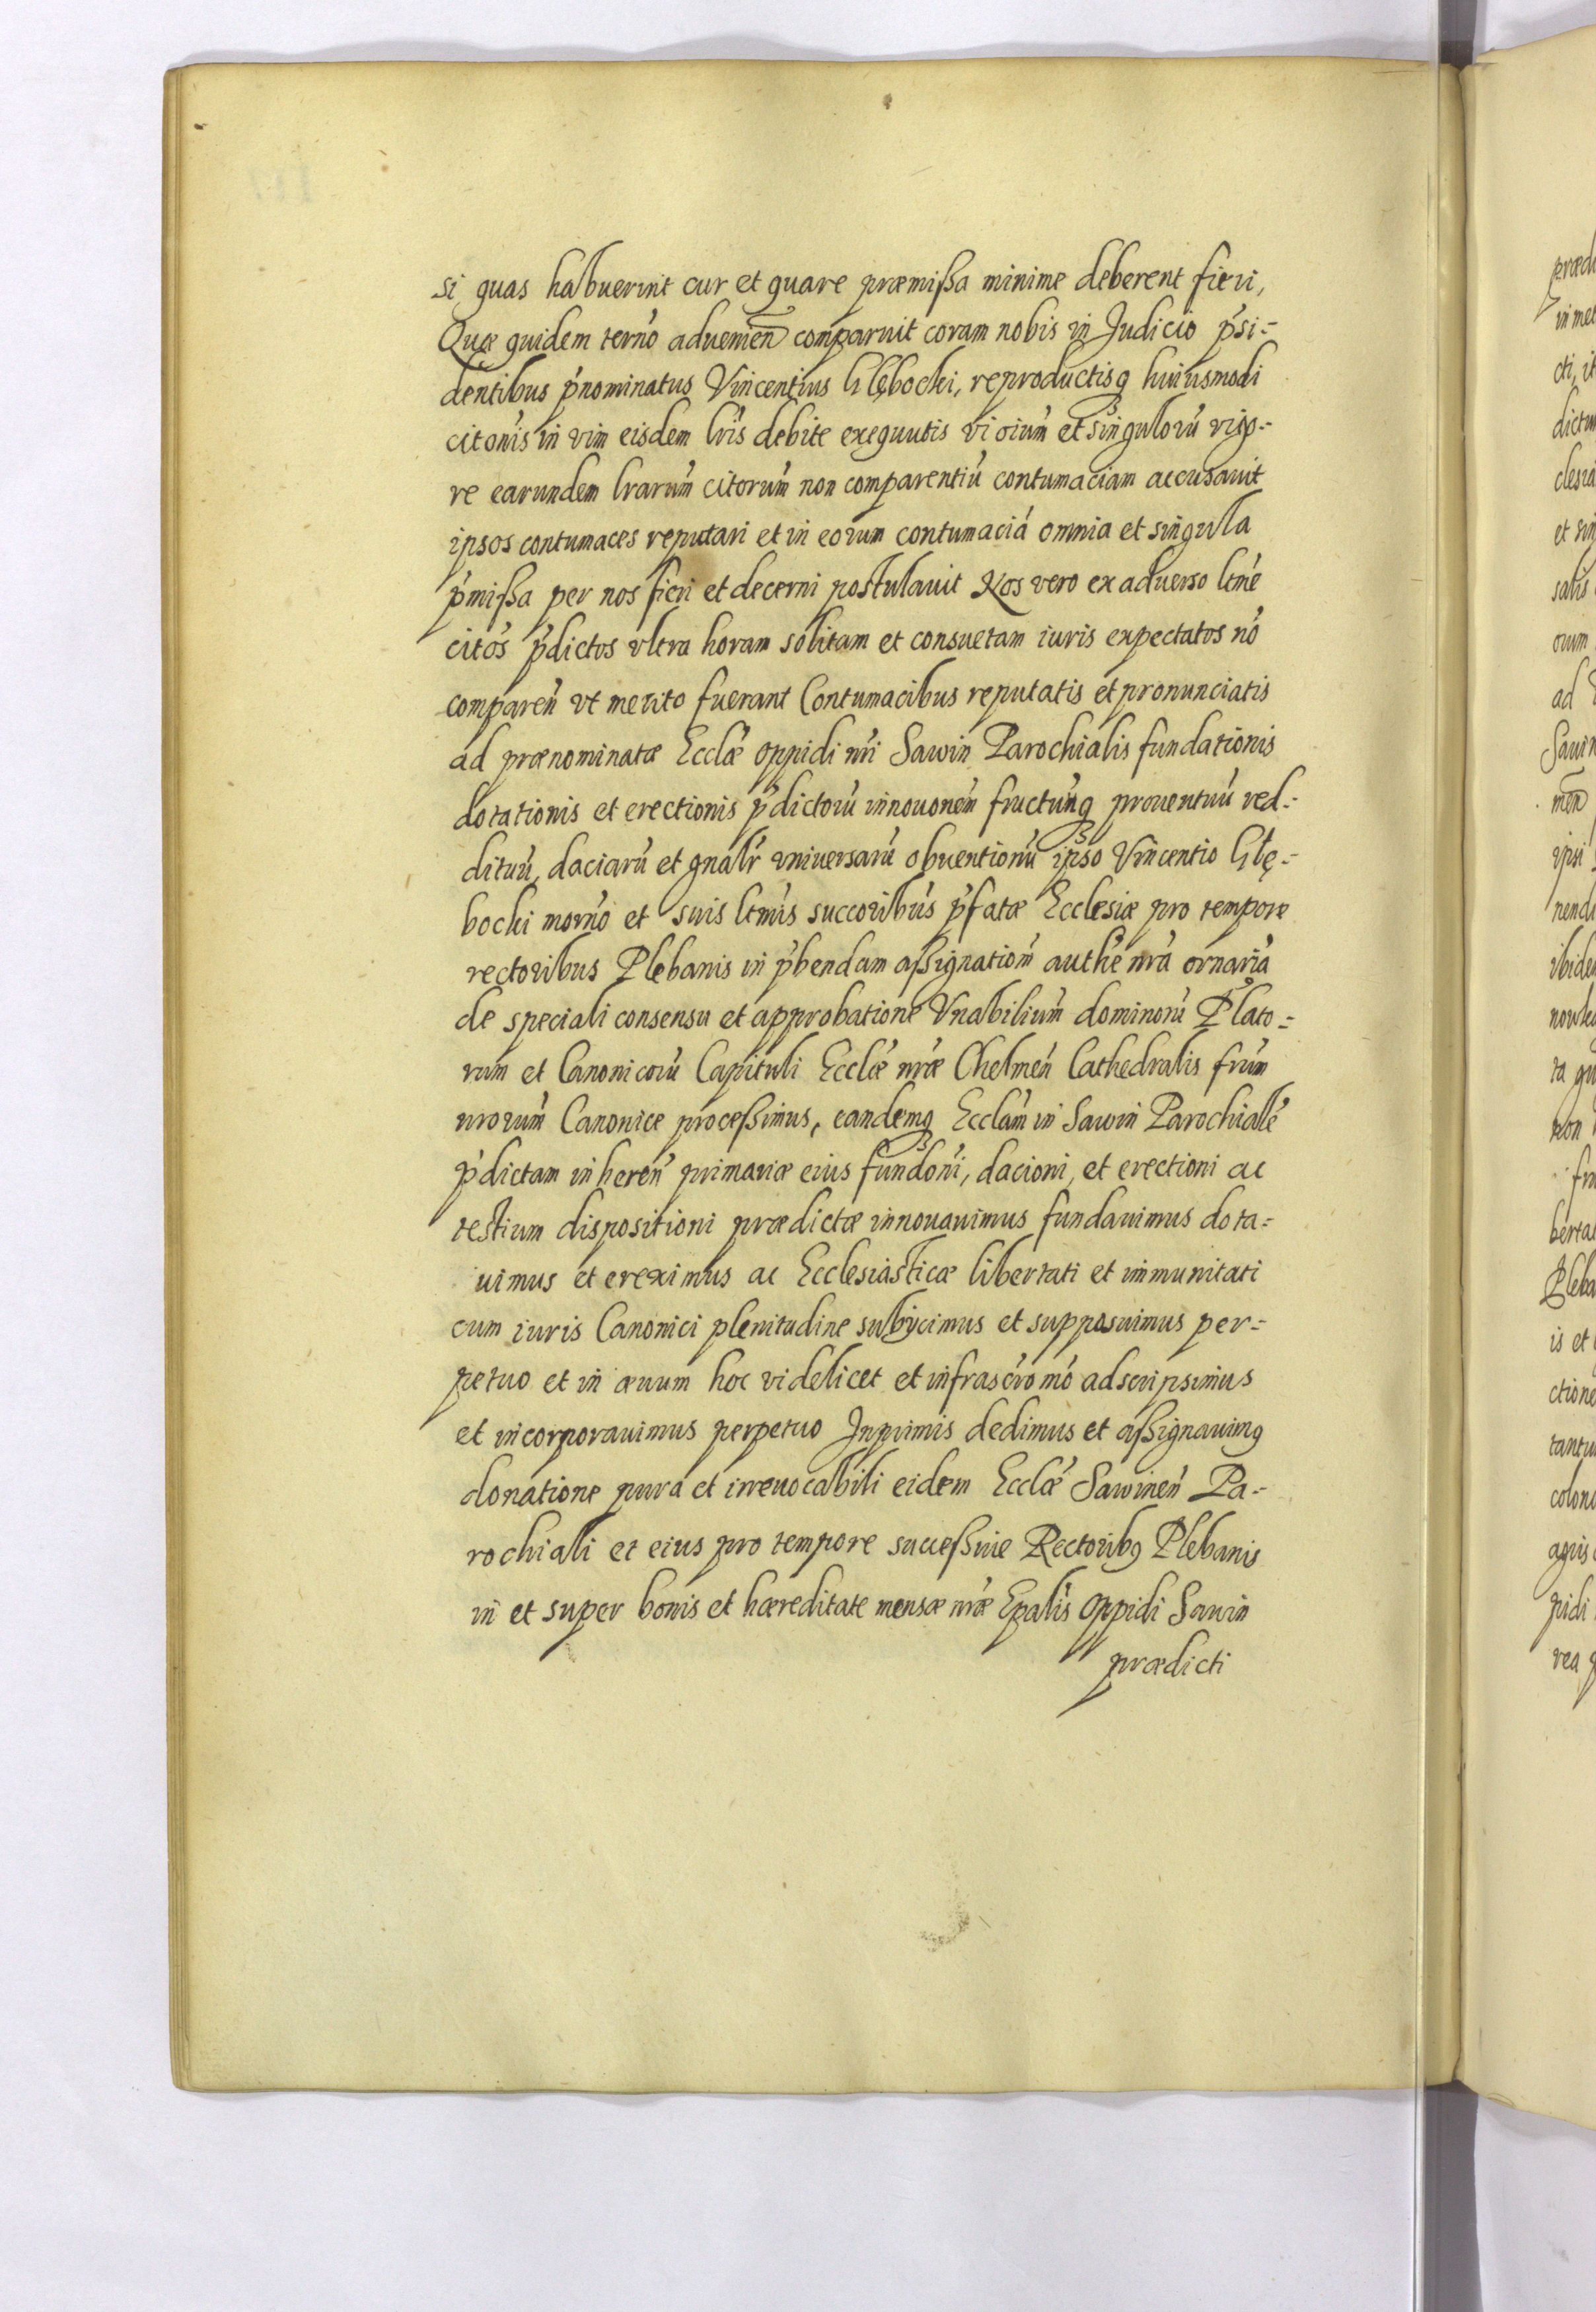 si quas habuerint cur et quare præmissa minime deberent fieri,
Quæ quidem terno᷃ aduenien̄ comparuit coram nobis in Judicio p̃si-
dentibus p̃nominatus Vincentius Głębocki, reproductisq₃ huiusmodi
citon̄is in vim eisdem lr̃is debite exequutis
re earundem lrarum̃ citorum̃ non comparentiũ contumaciam accusauit
ipsos contumaces reputari et in eorum contumaciã omnia et singula
p̃missa per nos fieri et decerni postulauit Nos vero ex aduerso ltm̃e
citos̃ p̃dictos vltra horam solitam et consuetam iuris expectatos nõ
comparen̄ vt merito fuerant Contumacibus reputatis et pronunciatis
ad prænominatæ Ecclæ̃ oppidi nr̃i Sawin Parochialis fundationis
dotationis et erectionis p̃dictorũ innouonem̃ fructuũq₃ prouentuũ red-
dituũ, daciarũ et gnalr̃ vniuersarũ obuentionũ ipso Vincentio Głę-
bocki morño et suis ltm̃is succoribus̃ p̃fatæ Ecclesiæ pro tempore
rectoribus Plebanis in p̃bendam assignationẽ authẽ nr̃a ornariã
de speciali consensu et approbatione Vnabilium̃ dominorũ Plato-
rum et Canonicorũ Capituli Ecclæ̃ nr̃æ Chelmen̄ Cathedralis frum̃
nrorum̃ Canonice processimus, eandemq₃ Ecclam̃ in Sawin Parochialẽ
p̃dictam inheren̄ primariæ eius fundoni᷃, dacioni, et erectioni ac
testium dispositioni prædictæ innouauimus fundauimus dota-
uimus et ereximus ac Ecclesiasticæ libertati et immunitati
cum iuris Canonici plenitudine subijcimus et supposuimus per-
petuo et in æuum hoc videlicet et infrascr̃o mõ adscripsimus
et incorporauimus perpetuo Inprimis dedimus et assignauimq
donatione pura et irreuocabili eidem Ecclæ̃ Sawinen̄ Pa-
rochiali et eius pro tempore successiue Rectoribq Plebanis
in et super bonis et hæreditate mensæ nr̃æ Epalis̃ Oppidi Sawin
prædicti